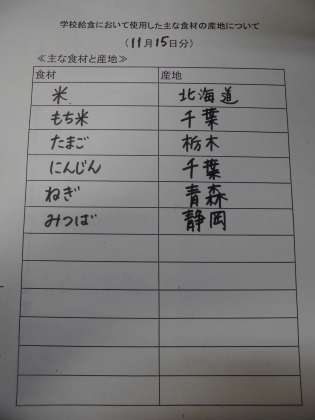 学校給食において使用した主な食材の産地について
(11月15日分)
≪主な食材と産地≫
食材 産地
米 北海道
もち米 千葉
たまご 栃木
にんじん 千葉
ねぎ 青森
みつば 静岡